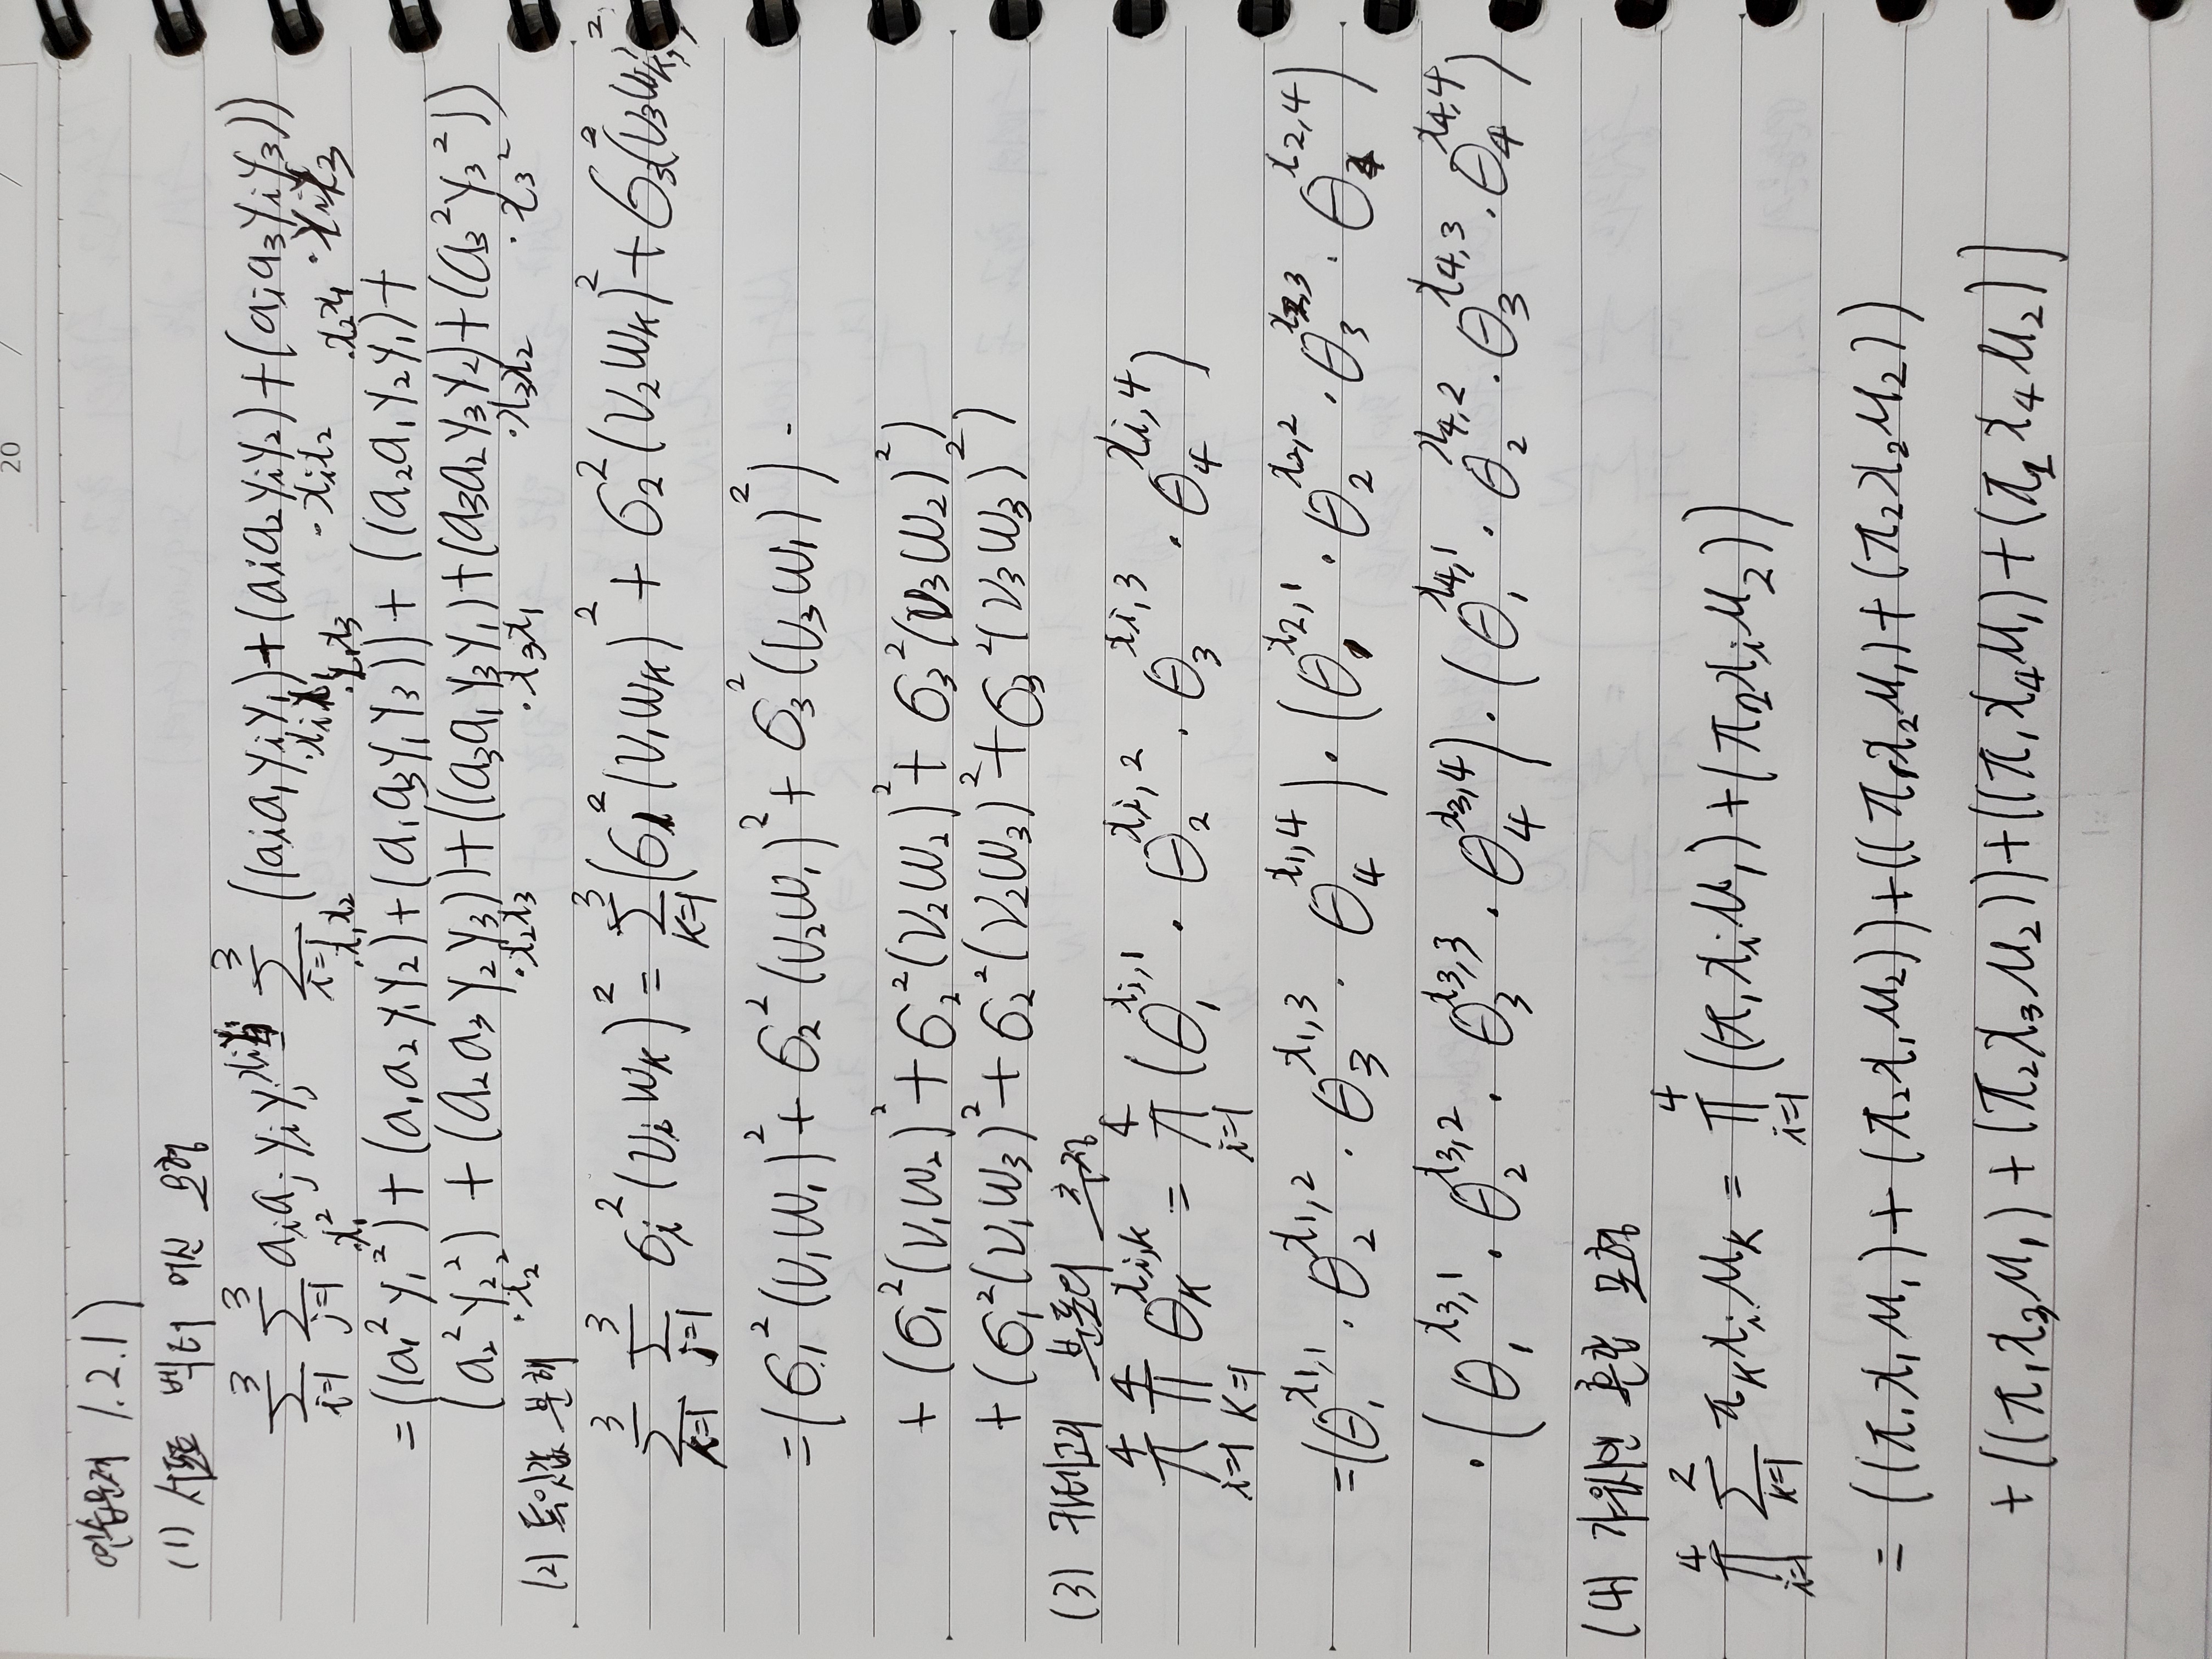 20 / /
연습문제 1.2.1)
(1) 서포트 벡터 머신 모형
∑_{i=1}^{3} ∑_{j=1}^{3} a_i a_j y_i y_j x_i x_j = ∑_{i=1}^{3} ((a_i a_1 y_i y_1 · x_i x_1) + (a_i a_2 y_i y_2 · x_i x_2) + (a_i a_3 y_i y_3 · x_i x_3))
= ((a_1² y_1² · x_1²) + (a_1 a_2 y_1 y_2 · x_1 x_2) + (a_1 a_3 y_1 y_3 · x_1 x_3)) + ((a_2 a_1 y_2 y_1 · x_2 x_1) +
(a_2² y_2² · x_2²) + (a_2 a_3 y_2 y_3 · x_2 x_3)) + ((a_3 a_1 y_3 y_1 · x_3 x_1) + (a_3 a_2 y_3 y_2 · x_3 x_2) + (a_3² y_3² · x_3²))
(2) 특잇값 분해
∑_{k=1}^{3} ∑_{j=1}^{3} σ_i² (v_i w_k)² = ∑_{k=1}^{3} (σ_1² (v_1 w_k)² + σ_2² (v_2 w_k)² + σ_3² (v_3 w_k)²)
= (σ_1² (v_1 w_1)² + σ_2² (v_2 w_1)² + σ_3² (v_3 w_1)²)
+ (σ_1² (v_1 w_2)² + σ_2² (v_2 w_2)² + σ_3² (v_3 w_2)²)
+ (σ_1² (v_1 w_3)² + σ_2² (v_2 w_3)² + σ_3² (v_3 w_3)²)
(3) 카테고리 분포의 추정
∏_{i=1}^{4} ∏_{k=1}^{4} θ_k^{x_i,k} = ∏_{i=1}^{4} (θ_1^{x_i,1} · θ_2^{x_i,2} · θ_3^{x_i,3} · θ_4^{x_i,4})
= (θ_1^{x_1,1} · θ_2^{x_1,2} · θ_3^{x_1,3} · θ_4^{x_1,4}) · (θ_1^{x_2,1} · θ_2^{x_2,2} · θ_3^{x_2,3} · θ_4^{x_2,4})
· (θ_1^{x_3,1} · θ_2^{x_3,2} · θ_3^{x_3,3} · θ_4^{x_3,4}) · (θ_1^{x_4,1} · θ_2^{x_4,2} · θ_3^{x_4,3} · θ_4^{x_4,4})
(4) 가우시안 혼합 모형
∏_{i=1}^{4} ∑_{k=1}^{2} π_k x_i μ_k = ∏_{i=1}^{4} ((π_1 x_i μ_1) + (π_2 x_i μ_2))
= ((π_1 x_1 μ_1) + (π_2 x_1 μ_2)) + ((π_1 x_2 μ_1) + (π_2 x_2 μ_2))
+ ((π_1 x_3 μ_1) + (π_2 x_3 μ_2)) + ((π_1 x_4 μ_1) + (π_2 x_4 μ_2))